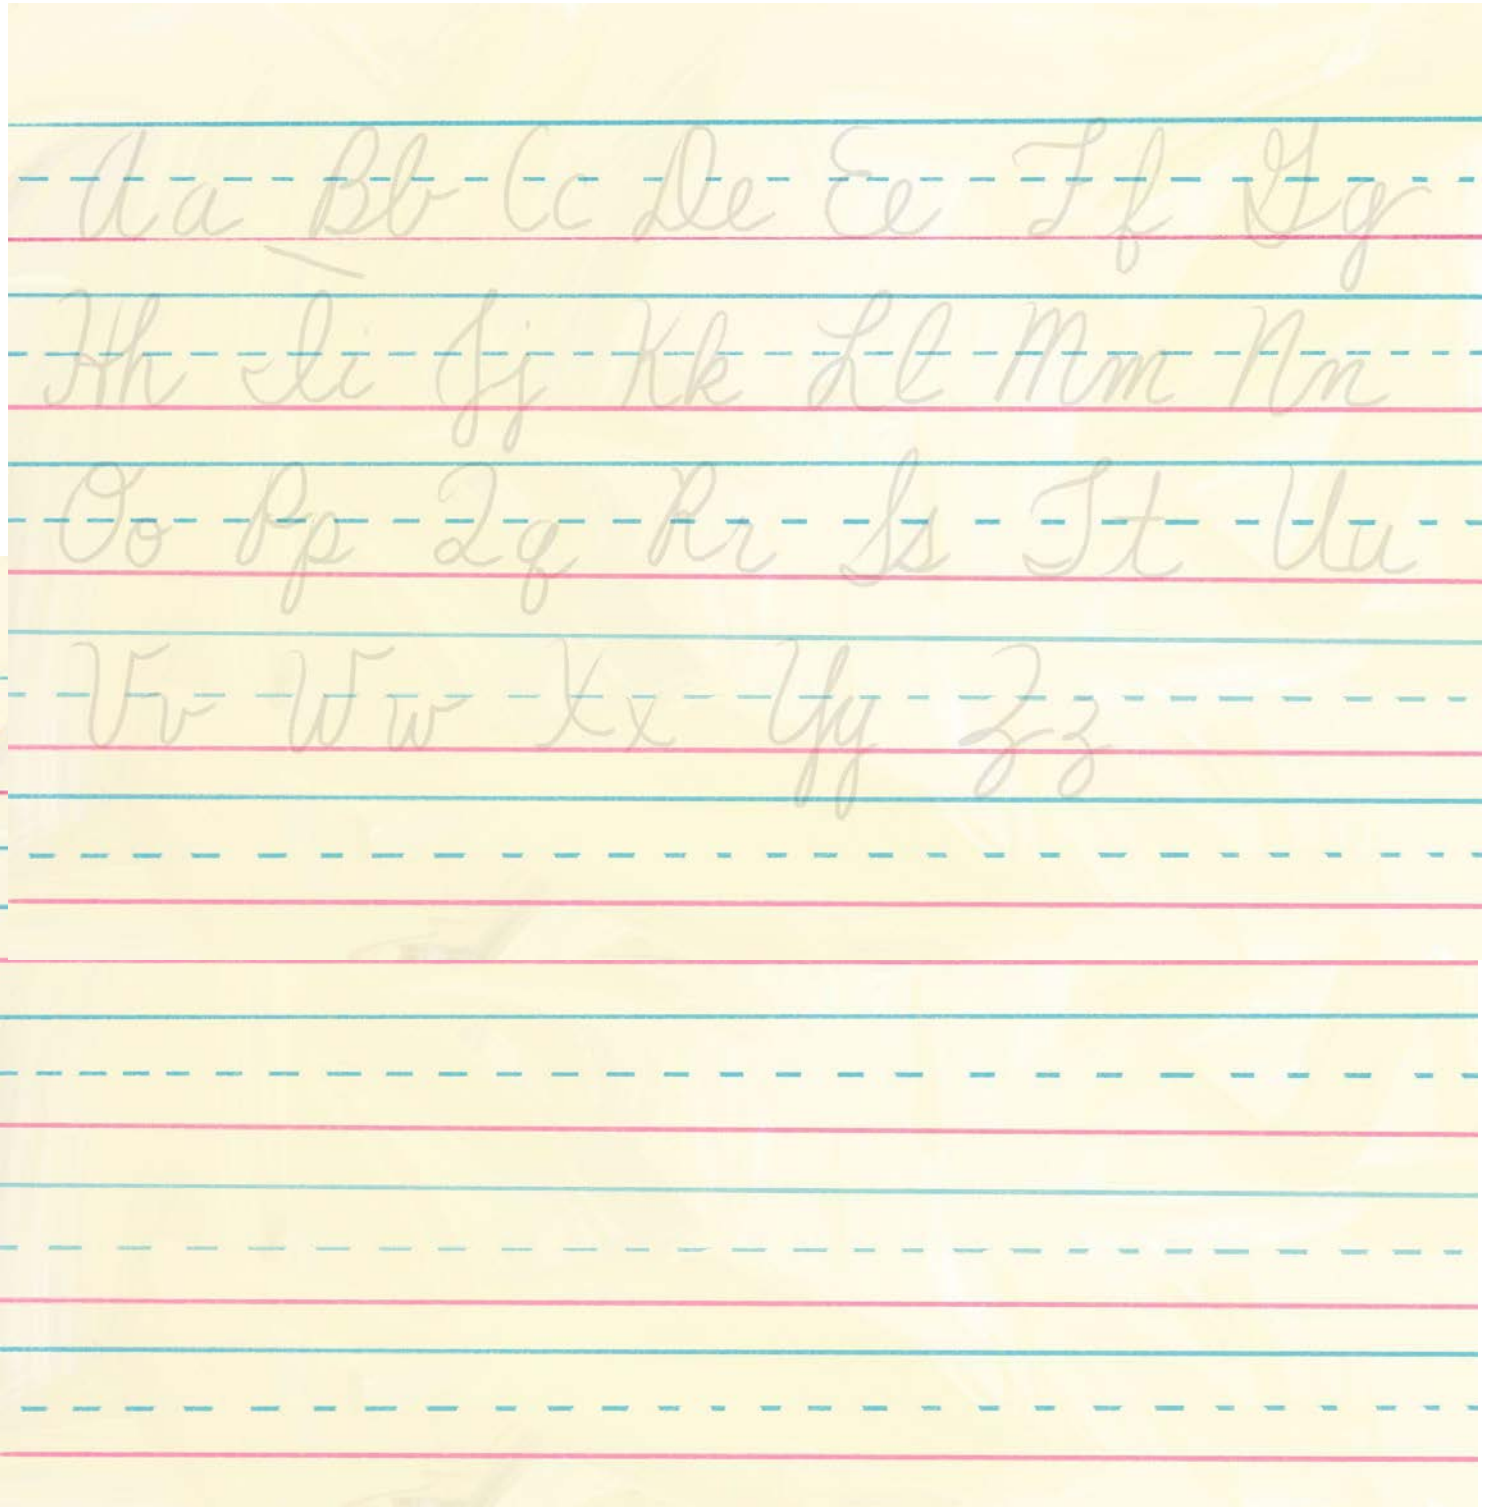 Aa Bb Cc De Ee Ff Gg
Hh Ii Jj Kk Ll Mm Nn
Oo Pp Qq Rr Ss Tt Uu
Vv Ww Xx Yy Zz